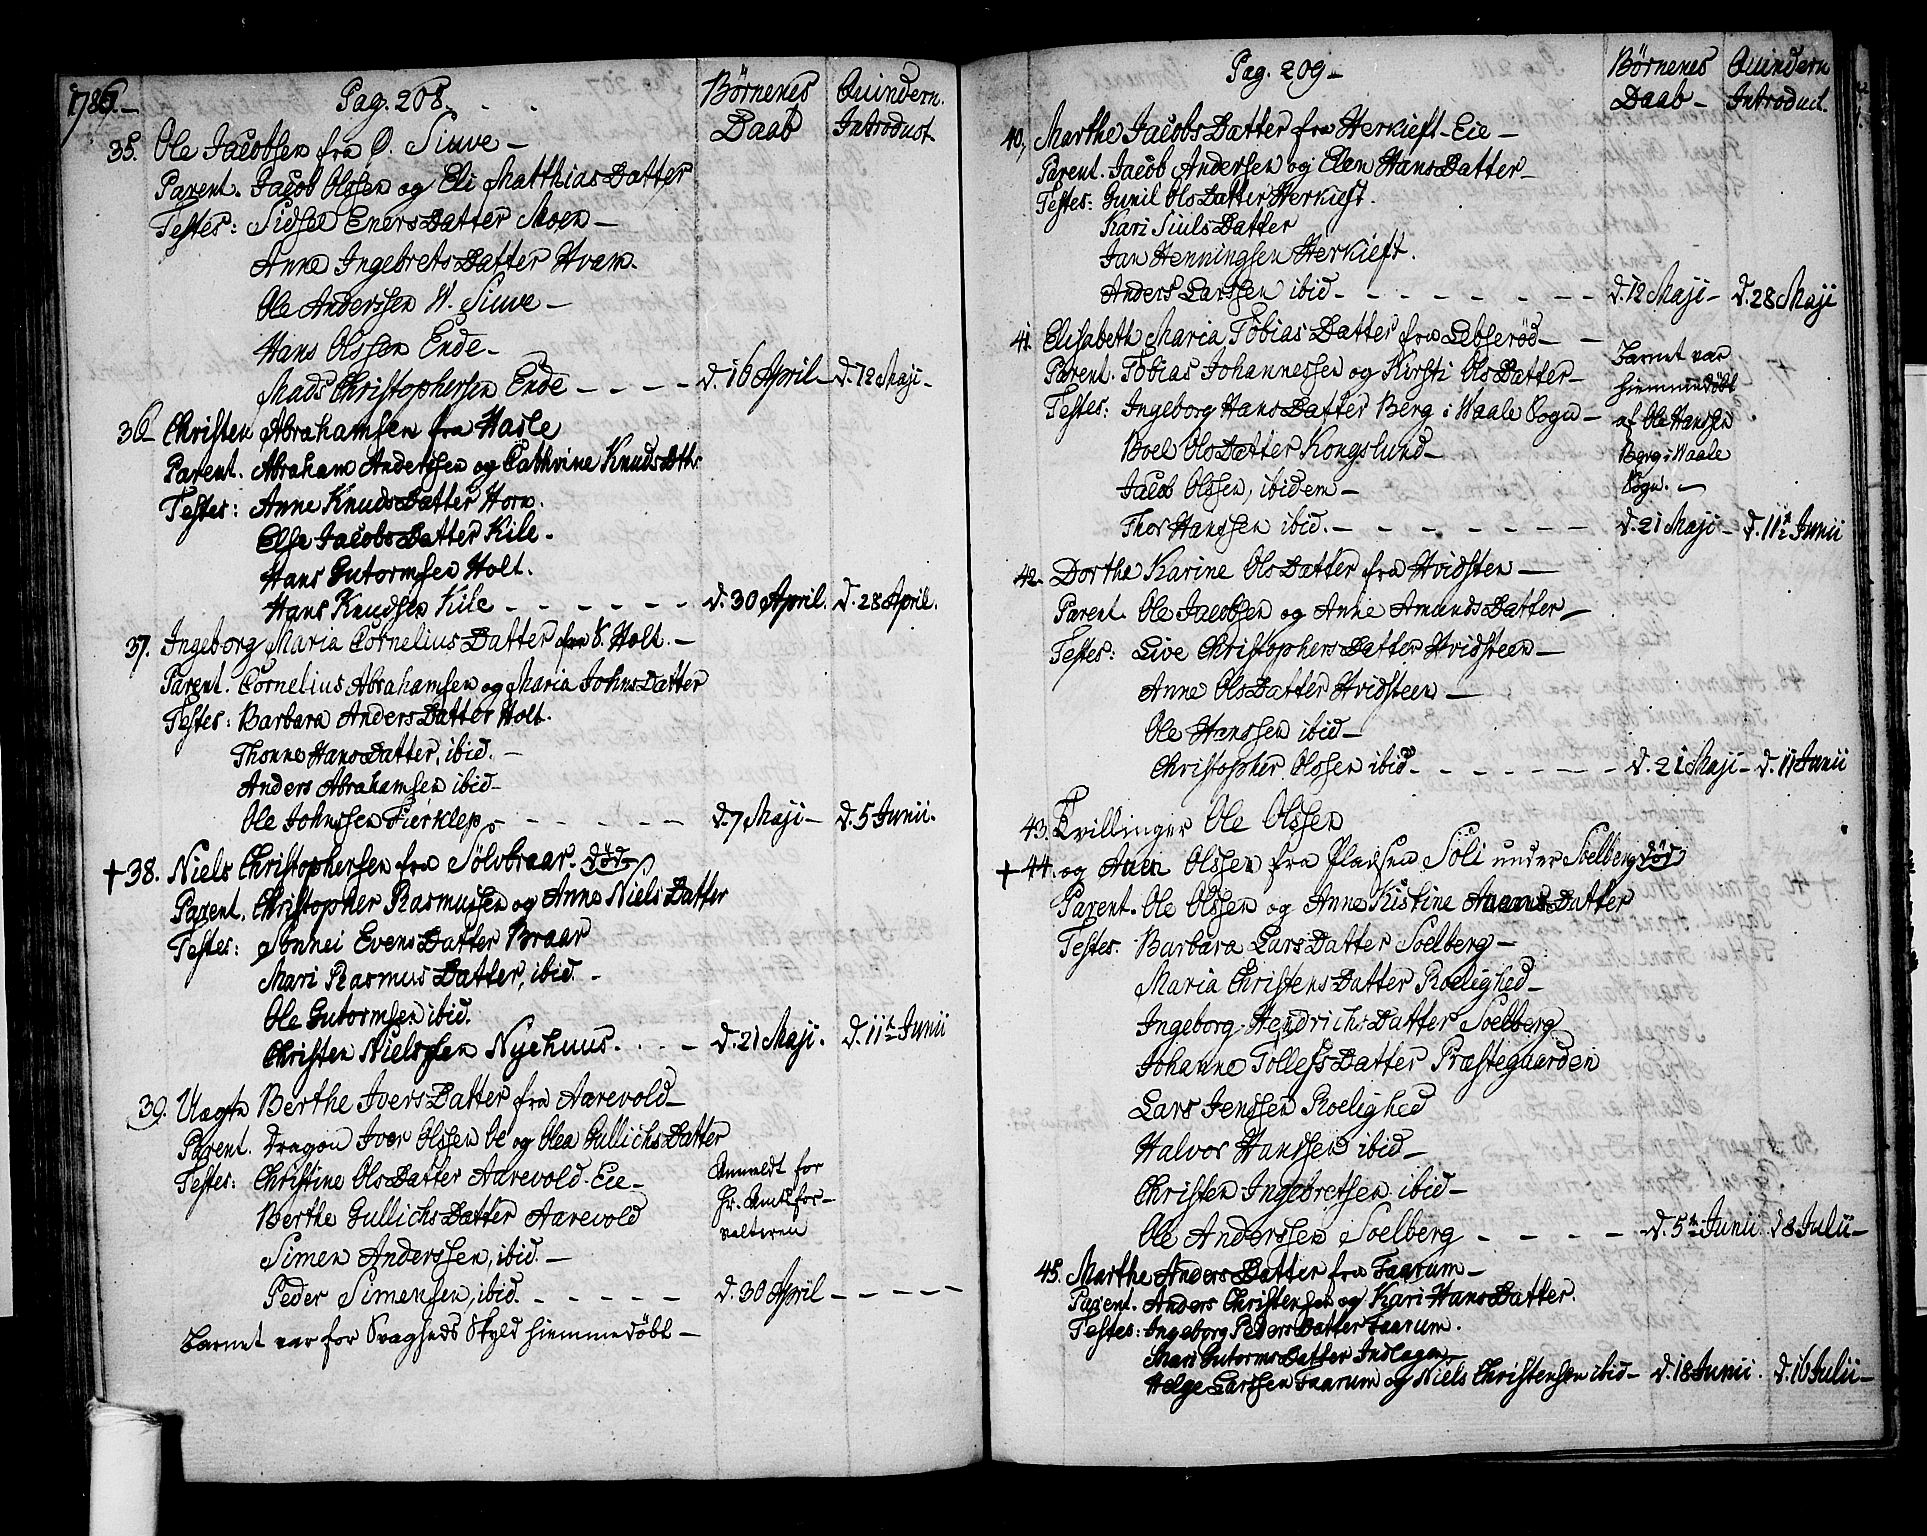 1786.
Pag. 208.
Börnenes Daab
Quindern. Introduct.
35. Ole Jacobsen fra Ø. Siuve
Parent. Jacob Olssen og Eli MatthiasDatter
Testes: Sidsel EnersDatter Moen
Anne IngebretsDatter Hvam.
Ole Anderssen W. Siuve
Hans Olssen Ende
Mads Christophersen Ende - - - - d. 16 April - d. 12 Maji
36 Christen Abrahamsen fra Hasle
Parent. Abraham Anderssen og Cathrine KnudsDttr
Testes: Anne KnudsDatter Horn.
Else JacobsDatter Kile.
Hans Gutormsen Holt.
Hans Knudsen Kile - - - - - - d. 30 April. d. 28 April.
37. Ingeborg Maria CorneliusDatter fra V. Holt.
Parent. Cornelius Abrahamsen og Maria JohnsDatter
Testes: Barbara AndersDatter Holt.
Thonne HansDatter, ibid.
Anders Abrahamsen ibid
Ole Johnssen Fierklep - - - - - - d. 7 Maji - d. 5 Junii.
+ 38. Niels Christophersen fra Sölvbraar. död
Parent. Christopher Rasmussen og Anne NielsDatter
Testes: Sönnei EvensDatter Braar
Mari RasmusDatter, ibid.
Ole Gutormsen ibid.
Christen Nielssen Nyehuus. - - - d. 21 Maji. d. 11te Junii
39. Uægte Berthe IversDatter fra Aarevold
Parent. Dragon Iver Olssen Oe og Olea GullichsDatter
Testes: Christine OlsDatter Aarevold-Eie
Berthe GullichsDatter Aarevold
Simen Anderssen, ibid.
Peder Simensen, ibid. - - - - - - d. 30 April - - - - -
Anmeldt for
Hr. Amtsfor-
valteren
Barnet var for Svagheds Skyld hiemmedöbt
Pag. 209
Börnenes Daab
Quindern Introduct.
40. Marthe JacobsDatter fra Herkieft-Eie
Parent. Jacob Anderssen og Elen HansDatter
Testes: Gunil OlsDatter Herkieft.
Kari SiulsDatter
Jan Henningsen Herkieft.
Anders Larssen ibid - - - - - - - d. 12 Maji - d. 28 Maji
41. Elisabeth Maria TobiasDatter fra Lebserød
Parent. Tobias Johannessen og Kirsti OlsDatter
Testes: Ingeborg HansDatter Berg i Waale Sogn
Boel OlsDatter Kongslund
Jacob Olssen, ibidem
Thor Hanssen ibid. - - - - - - - d. 21 Maji - d. 11te Junii
Barnet var
hiemmedöbt
af Ole Hanssen
Berg i Waale
Sogn.
42. Dorthe Karine OlsDatter fra Hvidsten
Parent. Ole Jacobsen og Anne AmundsDatter
Testes: Live ChristophersDatter Hvidsteen
Anne OlsDatter Hvidsteen
Ole Hanssen ibid
Christopher Olssen ibid - - - - - - - d. 21 Maji - d. 11 Junii
43. Tvillinger Ole Olssen
+ 44. og Aaen Olssen fra Pladsen Söli under Soelberg död
Parent. Ole Olssen og Anne Kistine AaensDatter
Testes: Barbara LarsDatter Soelberg
Maria ChristensDatter Roelighed
Ingeborg HendrichsDatter Soelberg
Johanne TollefsDatter Præsteguarden
Lars Jenssen Roelighed
Halvor Hanssen ibid
Christen Ingebretsen ibid
Ole Anderssen Soelberg - - - - d. 5te Junii d. 8 Julii
45. Marthe AndersDatter fra Faarum
Parent. Anders Christensen og Kari HansDatter.
Testes: Ingeborg PedersDatter Faarum.
Mari GutormsDatter Indlagen
Helge Larssen Faarum og Niels Christensen ibid d. 18 Junii. d. 16 Julii